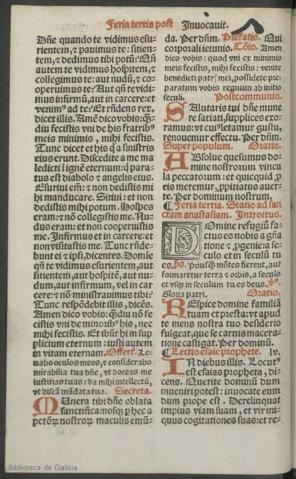 Feria tertia post Inuocauit.
Dñe quando te vidimus esu-
rientem, & pauimus te: sitien-
tem, & dedimus tibi potũ? Qñ
autem te vidimus hospitem, &
collegimus te: aut nudũ, & co-
operuimus te? Aut qñ te vidi-
mus infirmũ, aut in carcere: &
venimꝰ ad te? Et rñdens rex,
dicet illis. Amen dico vobis: q̃
diu fecistis vni de his fratribꝰ
meis minimis, mihi fecistis.
Tunc dicet et his q̃ a sinistris
eius erunt. Discedite a me ma
ledicti i ignẽ eternum: q̃ para-
tus est diabolo & angelis eius.
Esuriui em̃: & non dedistis mi
hi manducare. Sitiui: et non
dedistis mihi potum. Hospes
eram: & nõ collegistis me. Nu-
dus eram: et non cooperuistis
me. Infirmus et in carcere: et
non visitastis me. Tunc rñde-
bunt ei & ipsi, dicentes. Domĩe
qñ te vidimus esurientem, aut
sitientem, aut hospitẽ, aut nu-
dum, aut infirmũ, vel in carce-
re: & nõ ministrauimus tibi?
Tunc respõdebit illis, dicẽs.
Amen dico vobis: q̃diu nõ fe
cistis vni de minoribꝰ his, nec
mihi fecistis. Et ibũt hi in sup
plicium eternum: iusti autem
in vitam eternam. Offert. Le-
uabo oculos meos, & considerabo
mirabilia tua dñe, vt doceas me
iustitias tuas: da mihi intellectũ,
vt discã mãdata tua. Secreta.
Munera tibi dñe oblata
sanctifica: nosq; p hec a
peccatorum nostrorum maculis emũ-
da. Per dñm. Prefatio. Qui
corporali ieiunio. Cõio. Amen
dico vobis: quod vni ex minimis
meis fecistis, mihi fecistis: venite
benedicti patrꝭ mei, possidete pre
paratum vobis regnum ab initio
seculi. Postcommunio.
Salutaris tui dñe mune
re satiati, supplices ex-
oramus: vt cuiꝰ letamur gustu,
renouemur effectu. Per dñm.
Super populum. Oratio.
Absolue quesumus do-
mine nostrorum vincu
la peccatorum: et quicquid p
eis meremur, ꝓpitiatus auer-
te. Per dominum nostrum.
Feria tertia. Statio ad sã-
ctam anastasiam. Introitus.
Domine refugiũ fa-
ctus es nobis a gña
tione & ꝓgenie: a se
culo et in seculũ tu
es. ps. Priusq̃ mõtes fierent, aut
formaretur terra & orbis, a seculo
et vsq; in seculum tu es deus. ps.
Gloria patri. Oratio.
Respice domine familiã
tuam et presta: vt apud
te mens nostra tuo desiderio
fulgeat, que se carnis macera-
tione castigat. Per dominũ.
Lectio esaie prophete. lv.
In diebus illis. Locutꝰ
est esaias propheta, di-
cens. Querite dominũ dum
inueniri potest: inuocate eum
dum prope est. Derelinquat
impius viam suam, et vir ini-
quus cogitationes suas: et re-
Biblioteca de Galicia